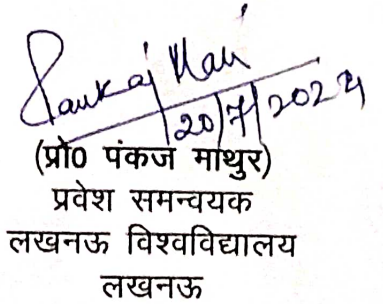 Pankaj
20/7/2024
(प्रो0 पंकज माथुर)
प्रवेश समन्वयक
लखनऊ विश्वविद्यालय
लखनऊ